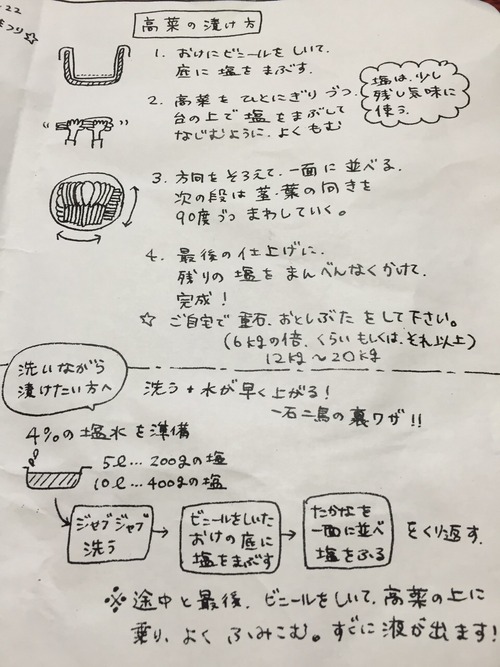 22
まつり☆
高菜の漬け方
1. おけにビニールをしいて.
底に塩をまぶす.
2. 高菜をひとにぎりづつ.
台の上で塩をまぶして
なじむように.よくもむ
塩は、少し
残し気味に
使う.
3. 方向をそろえて.一面に並べる.
次の段は茎・葉の向きを
90度づつ まわしていく。
4. 最後の仕上げに.
残りの塩をまんべんなくかけて.
完成!
☆ ご自宅で重石.おとしぶたをして下さい。
(6kgの倍.くらいもしくは.それ以上)
12kg~20kg
洗いながら
漬けたい方へ
洗う+水が早く上がる!
一石二鳥の裏ワザ!!
4%の塩水を準備
5ℓ…200gの塩
10ℓ…400gの塩
ジャブジャブ
洗う
→
ビニールをしいた
おけの底に
塩をまぶす
→
たかなを
一面に並べ
塩をふる
をくり返す.
※途中と最後.ビニールをしいて.高菜の上に
乗り、よくふみこむ。すぐに液が出ます!